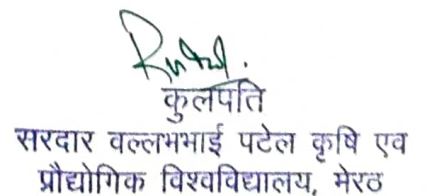 कुलपति
सरदार वल्लभभाई पटेल कृषि एव
प्रौद्योगिक विश्वविद्यालय, मेरठ